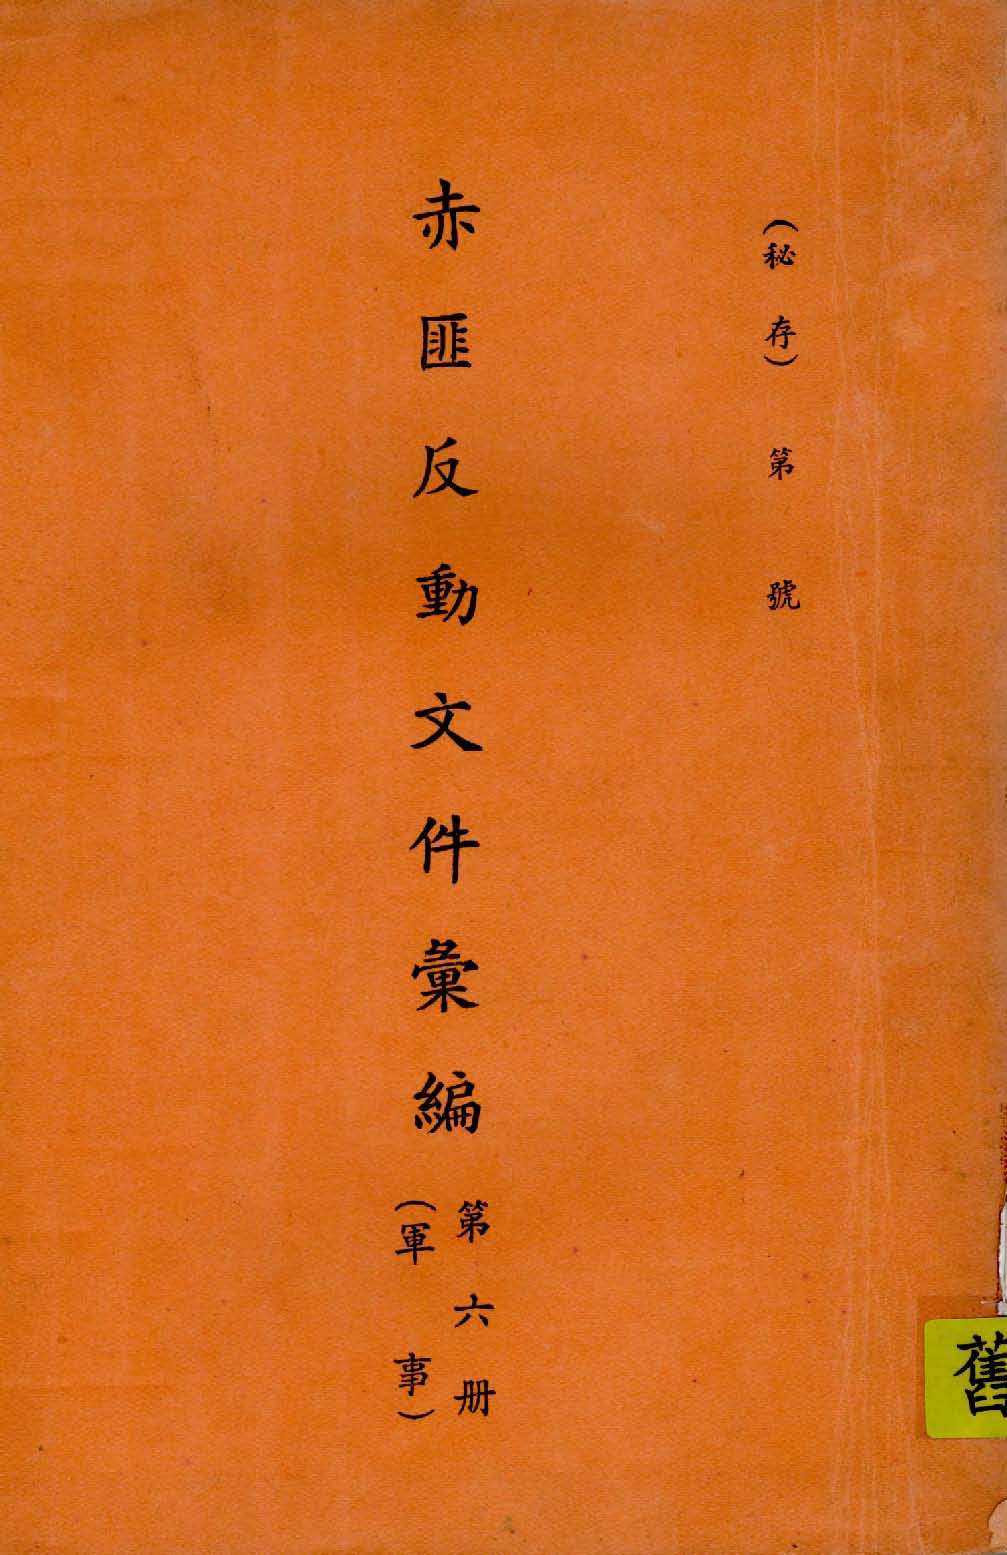 (秘存)第 號
赤匪反動文件彙編
第六册
(軍事)
舊